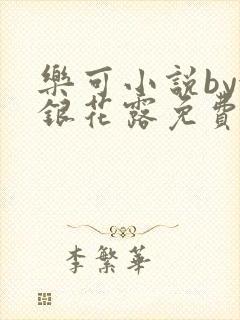 樂可小說by
銀花露免費
李繁華